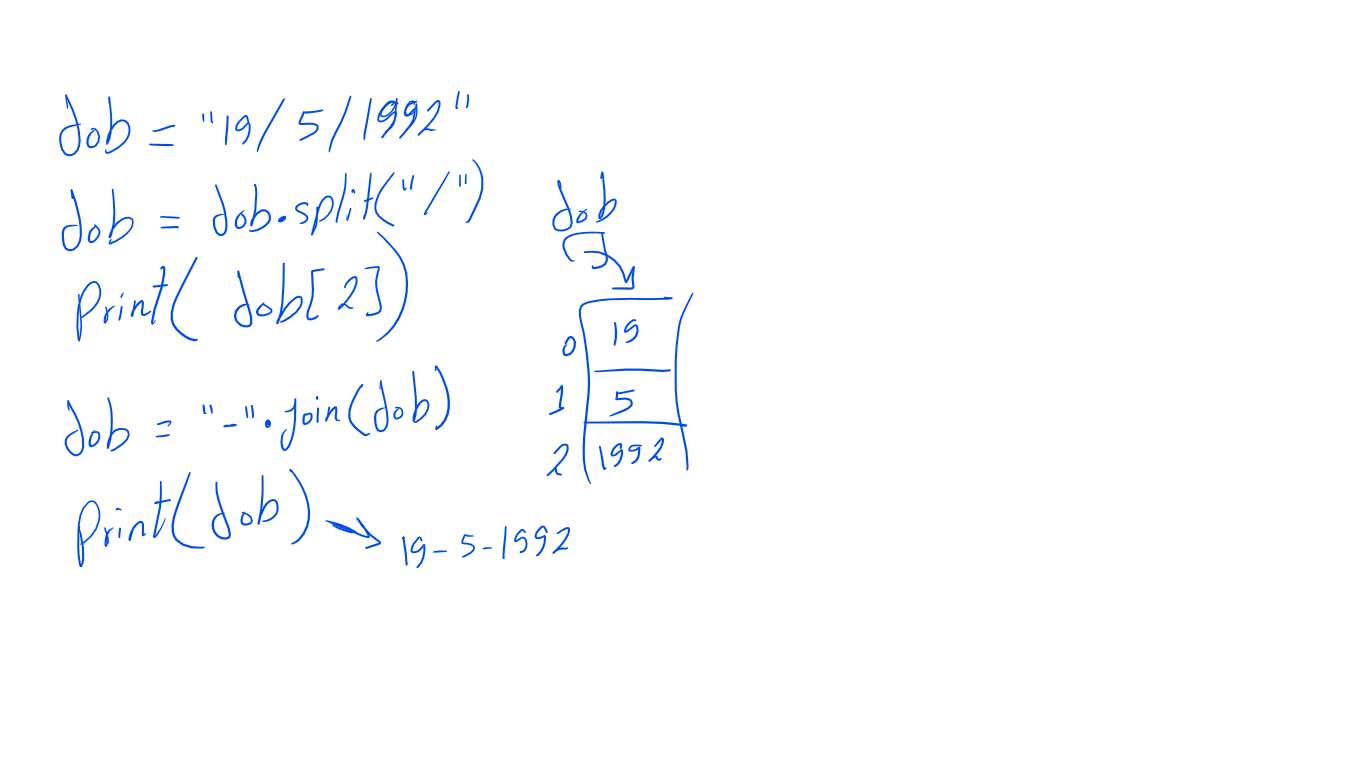 dob = "19/5/1992"
dob = dob.split("/")
print( dob[2])
dob = "-".join(dob)
print(dob) → 19-5-1992
dob
0 19
1 5
2 1992